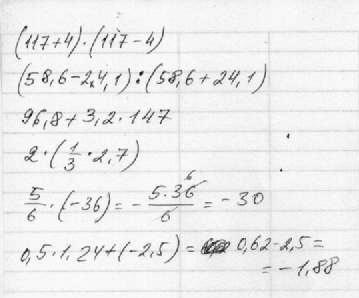 (117+4)·(117-4)
(58,6-24,1):(58,6+24,1)
96,8+3,2·147
2·(1/3·2,7)
5/6·(-36)=-5·36/6=-30
0,5·1,24+(-2,5)= 0,62-2,5=
=-1,88